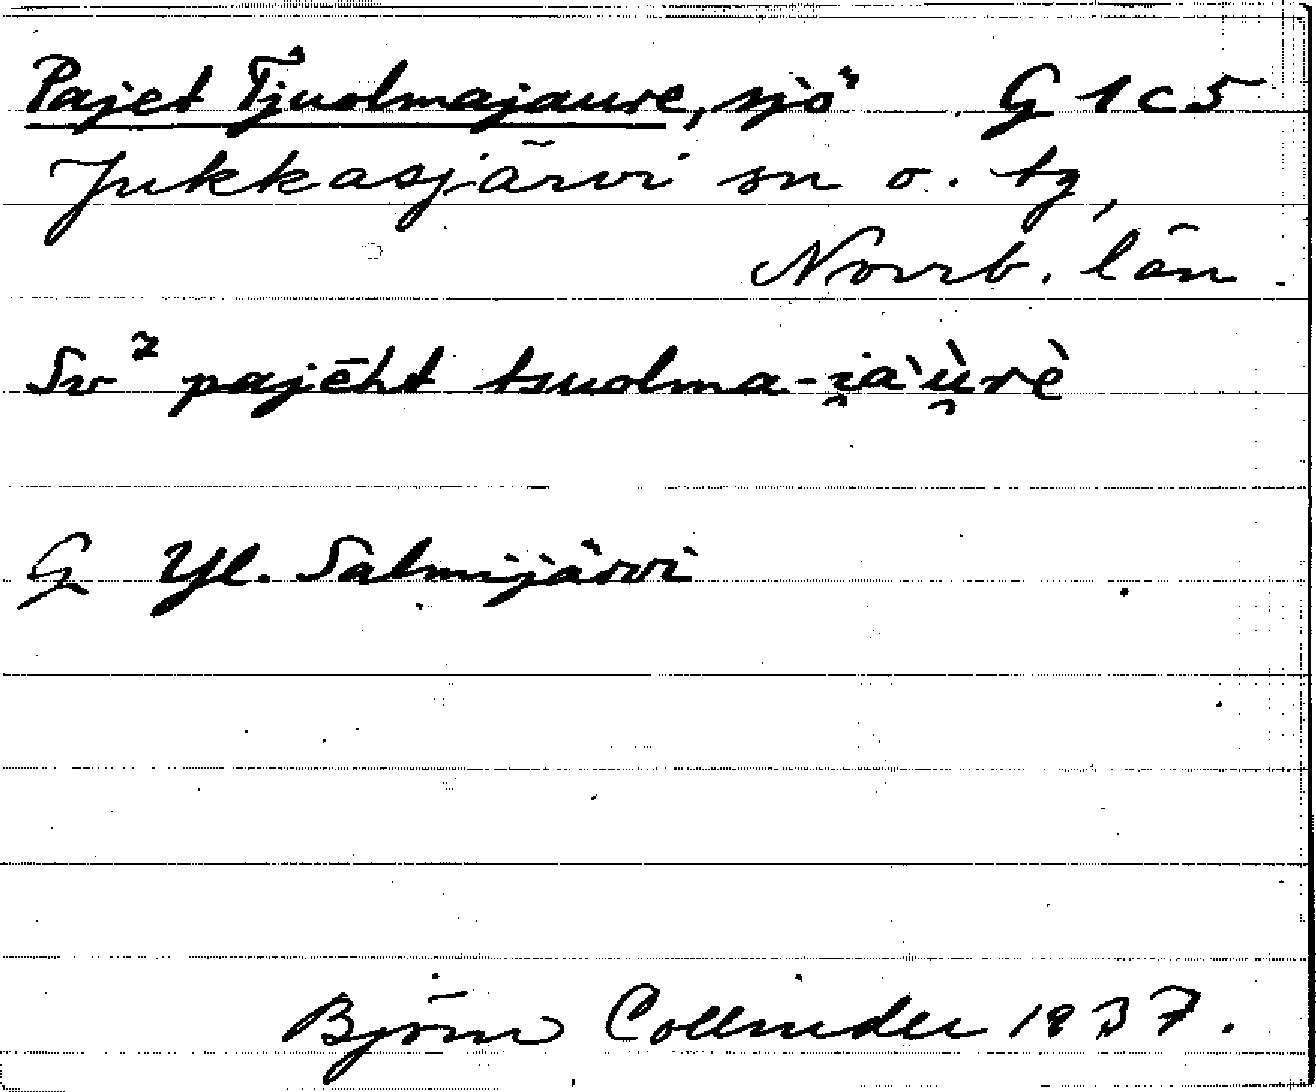 Pajet Tjuolmajaure, sjö G 1 c 5
Jukkasjärvi sn o. tg,
Norrb. län.
Sv² pajēht tsuolma-i̯a`ù̯rè
G Yl. Salmijärvi
Björn Collinder 1937.